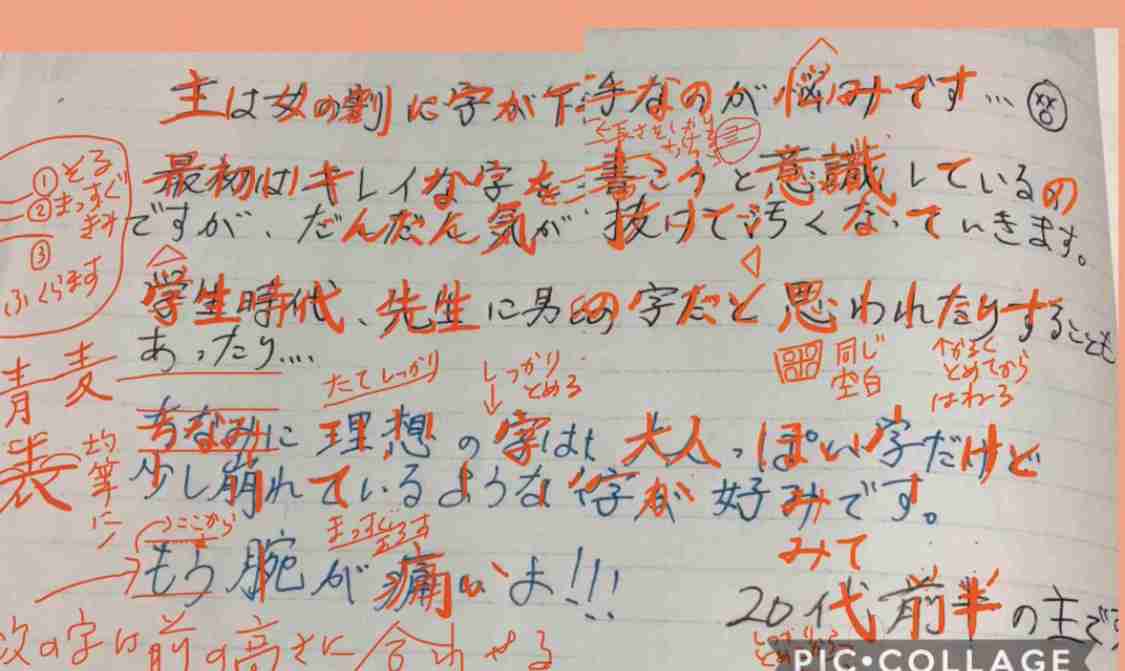 主は女の割に字が下手なのが悩みです…
最初はキレイな字を書こうと意識しているの
ですが、だんだん気が抜けて汚くなっていきます。
学生時代、先生に男の字だと思われたりすることも
あったり....
ちなみに理想の字は大人っぽい字だけど
少し崩れているような字が好みです。
もう腕が痛いよ!!!
20代前半の主です
①そろ
②まっすぐ
③
ふくらます
青麦
表
均等に
たてしっかり
しっかり
とめる
同じ
空白
とめてから
はねる
ここから
まっすぐ
みて
次の字は前の高さに合わせる
PIC•COLLAGE